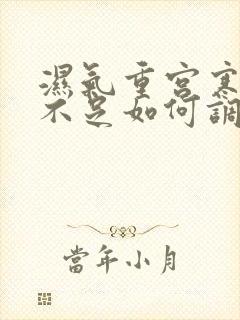 濕氣重宮寒
不足如何調
當年小月